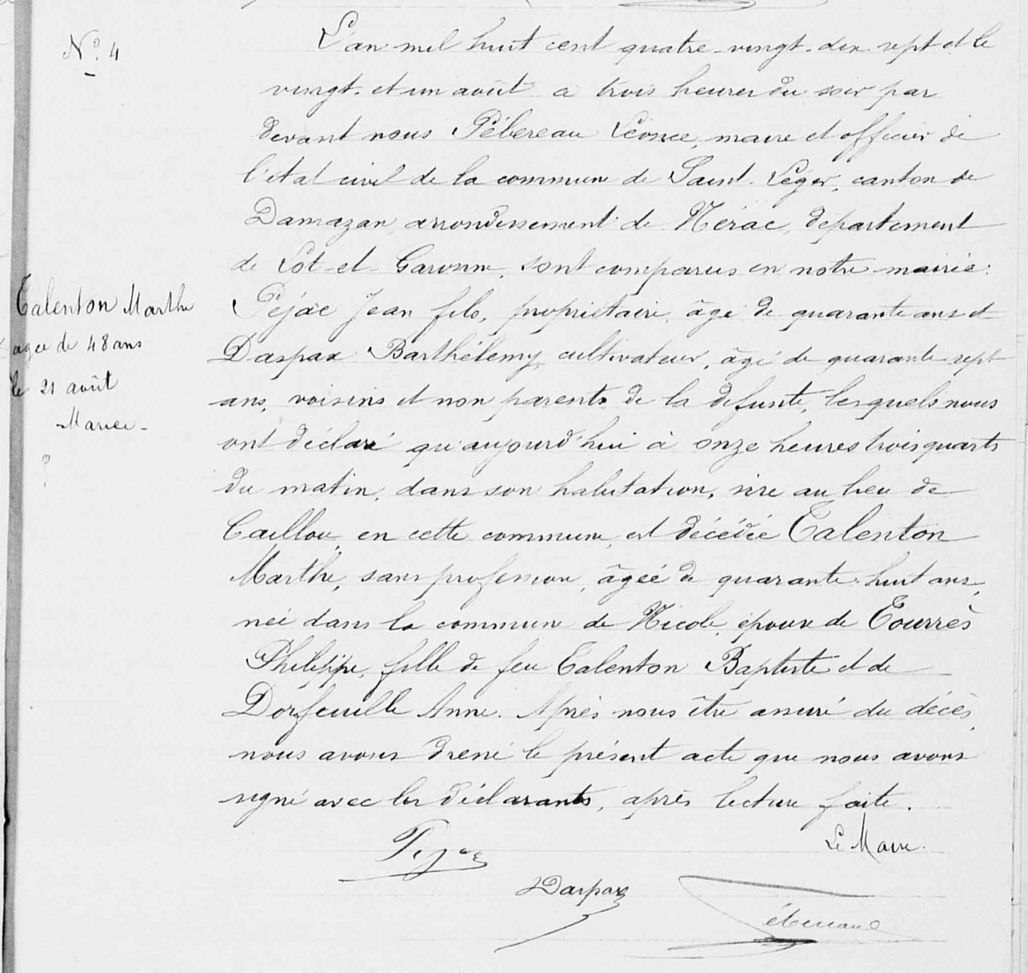 N° 4
L'an mil huit cent quatre-vingt-dix sept et le
vingt et un août à trois heures du soir par
devant nous Pébereau Léonce, maire et officier de
l'état civil de la commune de Saint-Léger, canton de
Damazan, arrondissement de Nérac, département
de Lot-et-Garonne, sont comparus en notre mairie:
Péjac Jean fils, propriétaire, âgé de quarante ans et
Daspax Barthélemy, cultivateur, âgé de quarante-sept
ans, voisins et non parents de la défunte, lesquels nous
ont déclaré qu'aujourd'hui à onze heures trois quarts
du matin, dans son habitation, sise au lieu de
Caillou, en cette commune, est décédée Talenton
Marthe, sans profession, âgée de quarante-huit ans,
née dans la commune de Nicole, épouse de Tourrès
Philippe, fille de feu Talenton Baptiste et de
Dorfeuille Anne. Après nous être assuré du décès,
nous avons dressé le présent acte que nous avons
signé avec les déclarants, après lecture faite.
Talenton Marthe
agée de 48 ans
le 21 août
Mariée
?
Le Maire
Péjac
Daspax
Pébereau